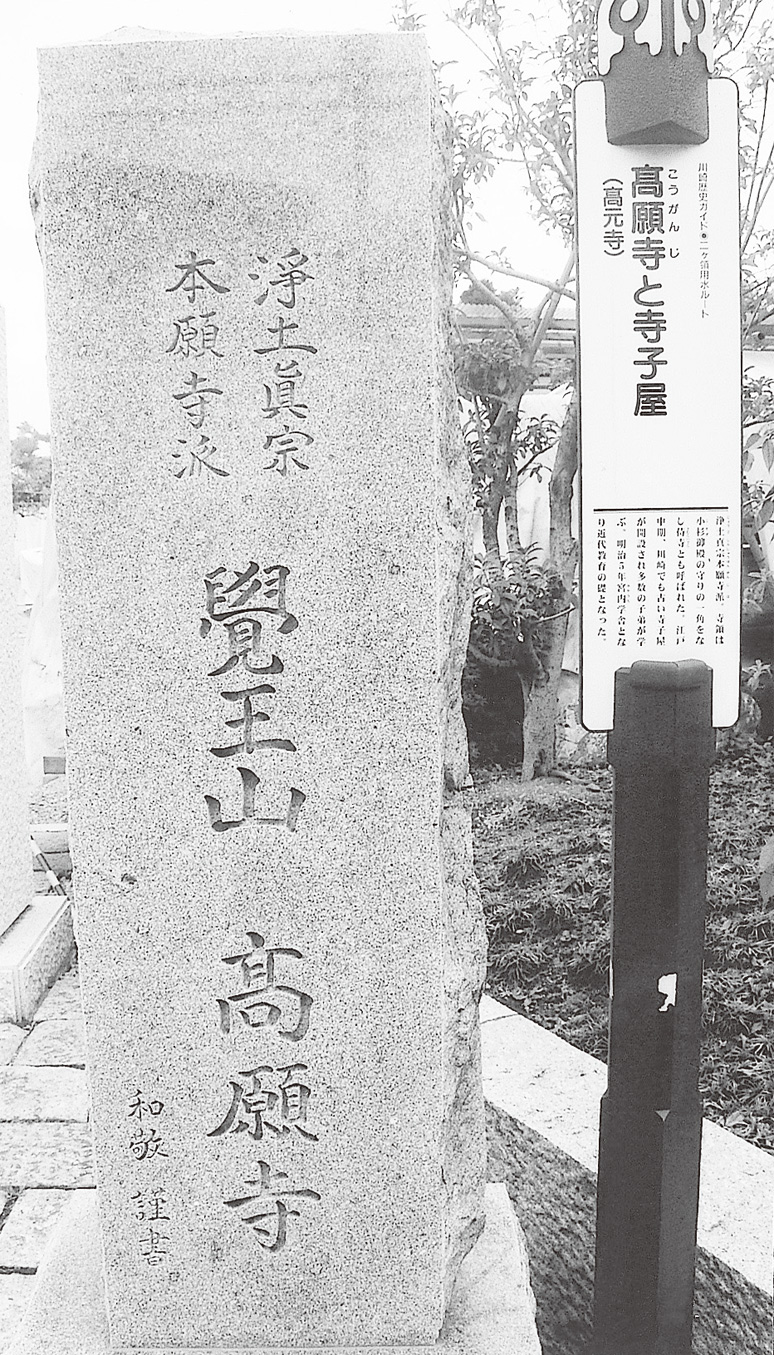 浄土眞宗
本願寺派
覺王山 髙願寺
和敬 謹書
川崎歴史ガイド●二ヶ領用水ルート
こうがんじ
髙願寺と寺子屋
(高元寺)
浄土真宗本願寺派。寺領は
小杉御殿の守りの一角をな
し侍寺とも呼ばれた。江戸
中期、川崎でも古い寺子屋
が開設され多数の子弟が学
ぶ。明治5年宮内学舎とな
り近代教育の礎となった。